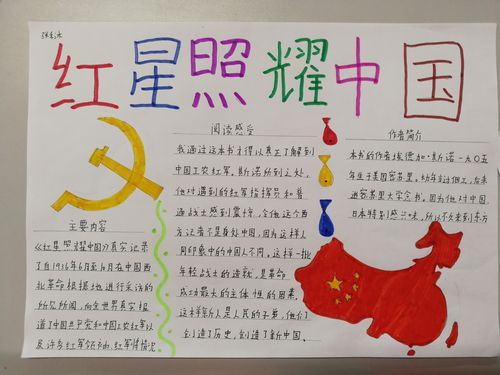 红星照耀中国
主要内容
《红星照耀中国》真实记录
了自1936年6月至10月在中国西
北革命根据地进行采访的
所见所闻,向全世界真实报
道了中国共产党和中国工农红军以
及许多红军领袖、红军将领情况
阅读感受
我通过这本书才得以真正了解到
中国工农红军。斯诺所到之处,
他对遇到的红军指挥员和普
通战士感到震惊,令他这个西
方记者不是身处中国,因为这样人
同印象中的中国人不同。这样一批
年轻战士的造就,是革命
成功最大的主体性的因素。
这样年轻人是人民的子弟,他们
创造了历史,创造了新中国。
作者简介
本书的作者埃德加·斯诺一九〇五
年生于美国密苏里,幼年当过佃工,后来
进密苏里大学念书。因为他对中国,
日本特别感兴味,所以不久来到东方